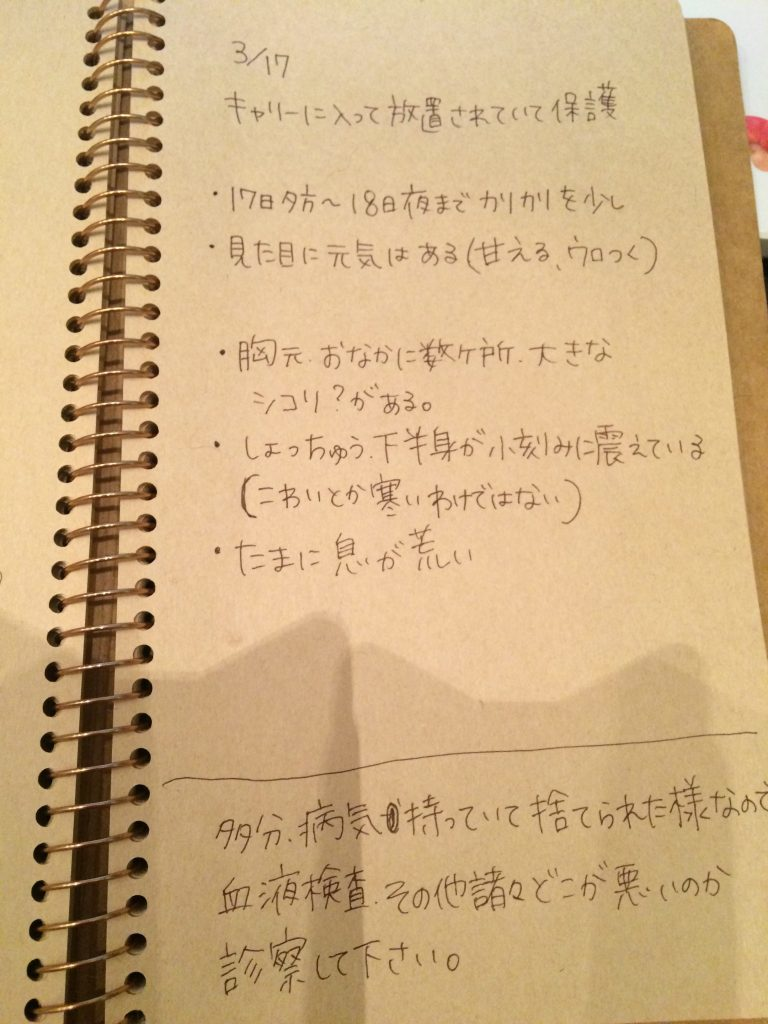 3/17
キャリーに入って放置されていて保護
・17日夕方〜18日夜までカリカリを少し
・見た目に元気はある(甘える、ウロつく)
・胸元、おなかに数ヶ所、大きな
シコリ?がある。
・しょっちゅう、下半身が小刻みに震えている
(こわいとか寒いわけではない)
・たまに息が荒い
多分、病気持っていて捨てられた様なので
血液検査、その他諸々どこが悪いのか
診察して下さい。